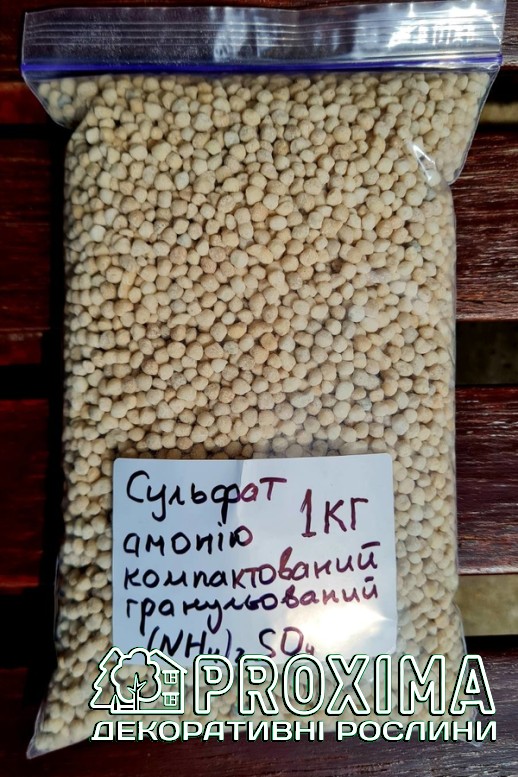 Сульфат
амонію 1КГ
компактований
гранульований
(NH₄)₂SO₄
PROXIMA
ДЕКОРАТИВНІ РОСЛИНИ